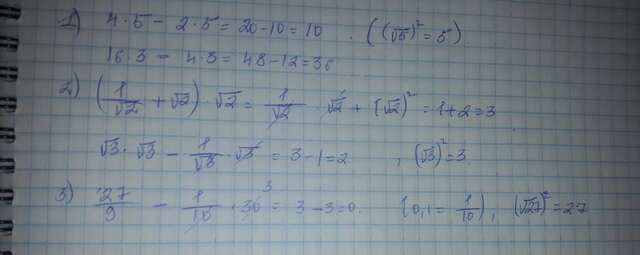 1) 4·5 − 2·5 = 20−10 = 10 . ((√5)² = 5).
16·3 − 4·3 = 48−12 = 36
2) (1/√2 + √2)·√2 = 1/√2 · √2 + (√2)² = 1+2 = 3
√3·√3 − 1/√3 · √3 = 3−1 = 2 , (√3)² = 3.
3) 27/9 − 1/10 · 30 ³ = 3−3 = 0. (0,1 = 1/10), (√27)² = 27